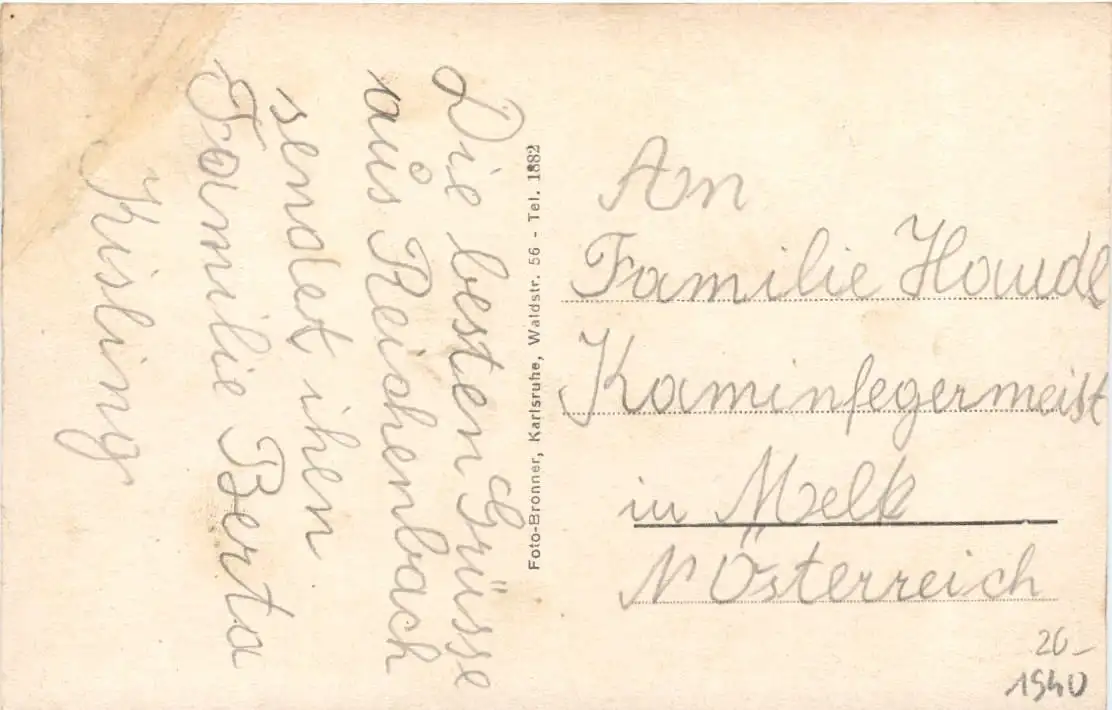 Die besten Grüsse
aus Reichenbach
sendet ihen
Familie Berta
Kisling
Foto-Bronner, Karlsruhe, Waldstr. 56 - Tel. 1882
An
Familie Haudl
Kaminfegermeist
in Melk
N Österreich
20-
1940